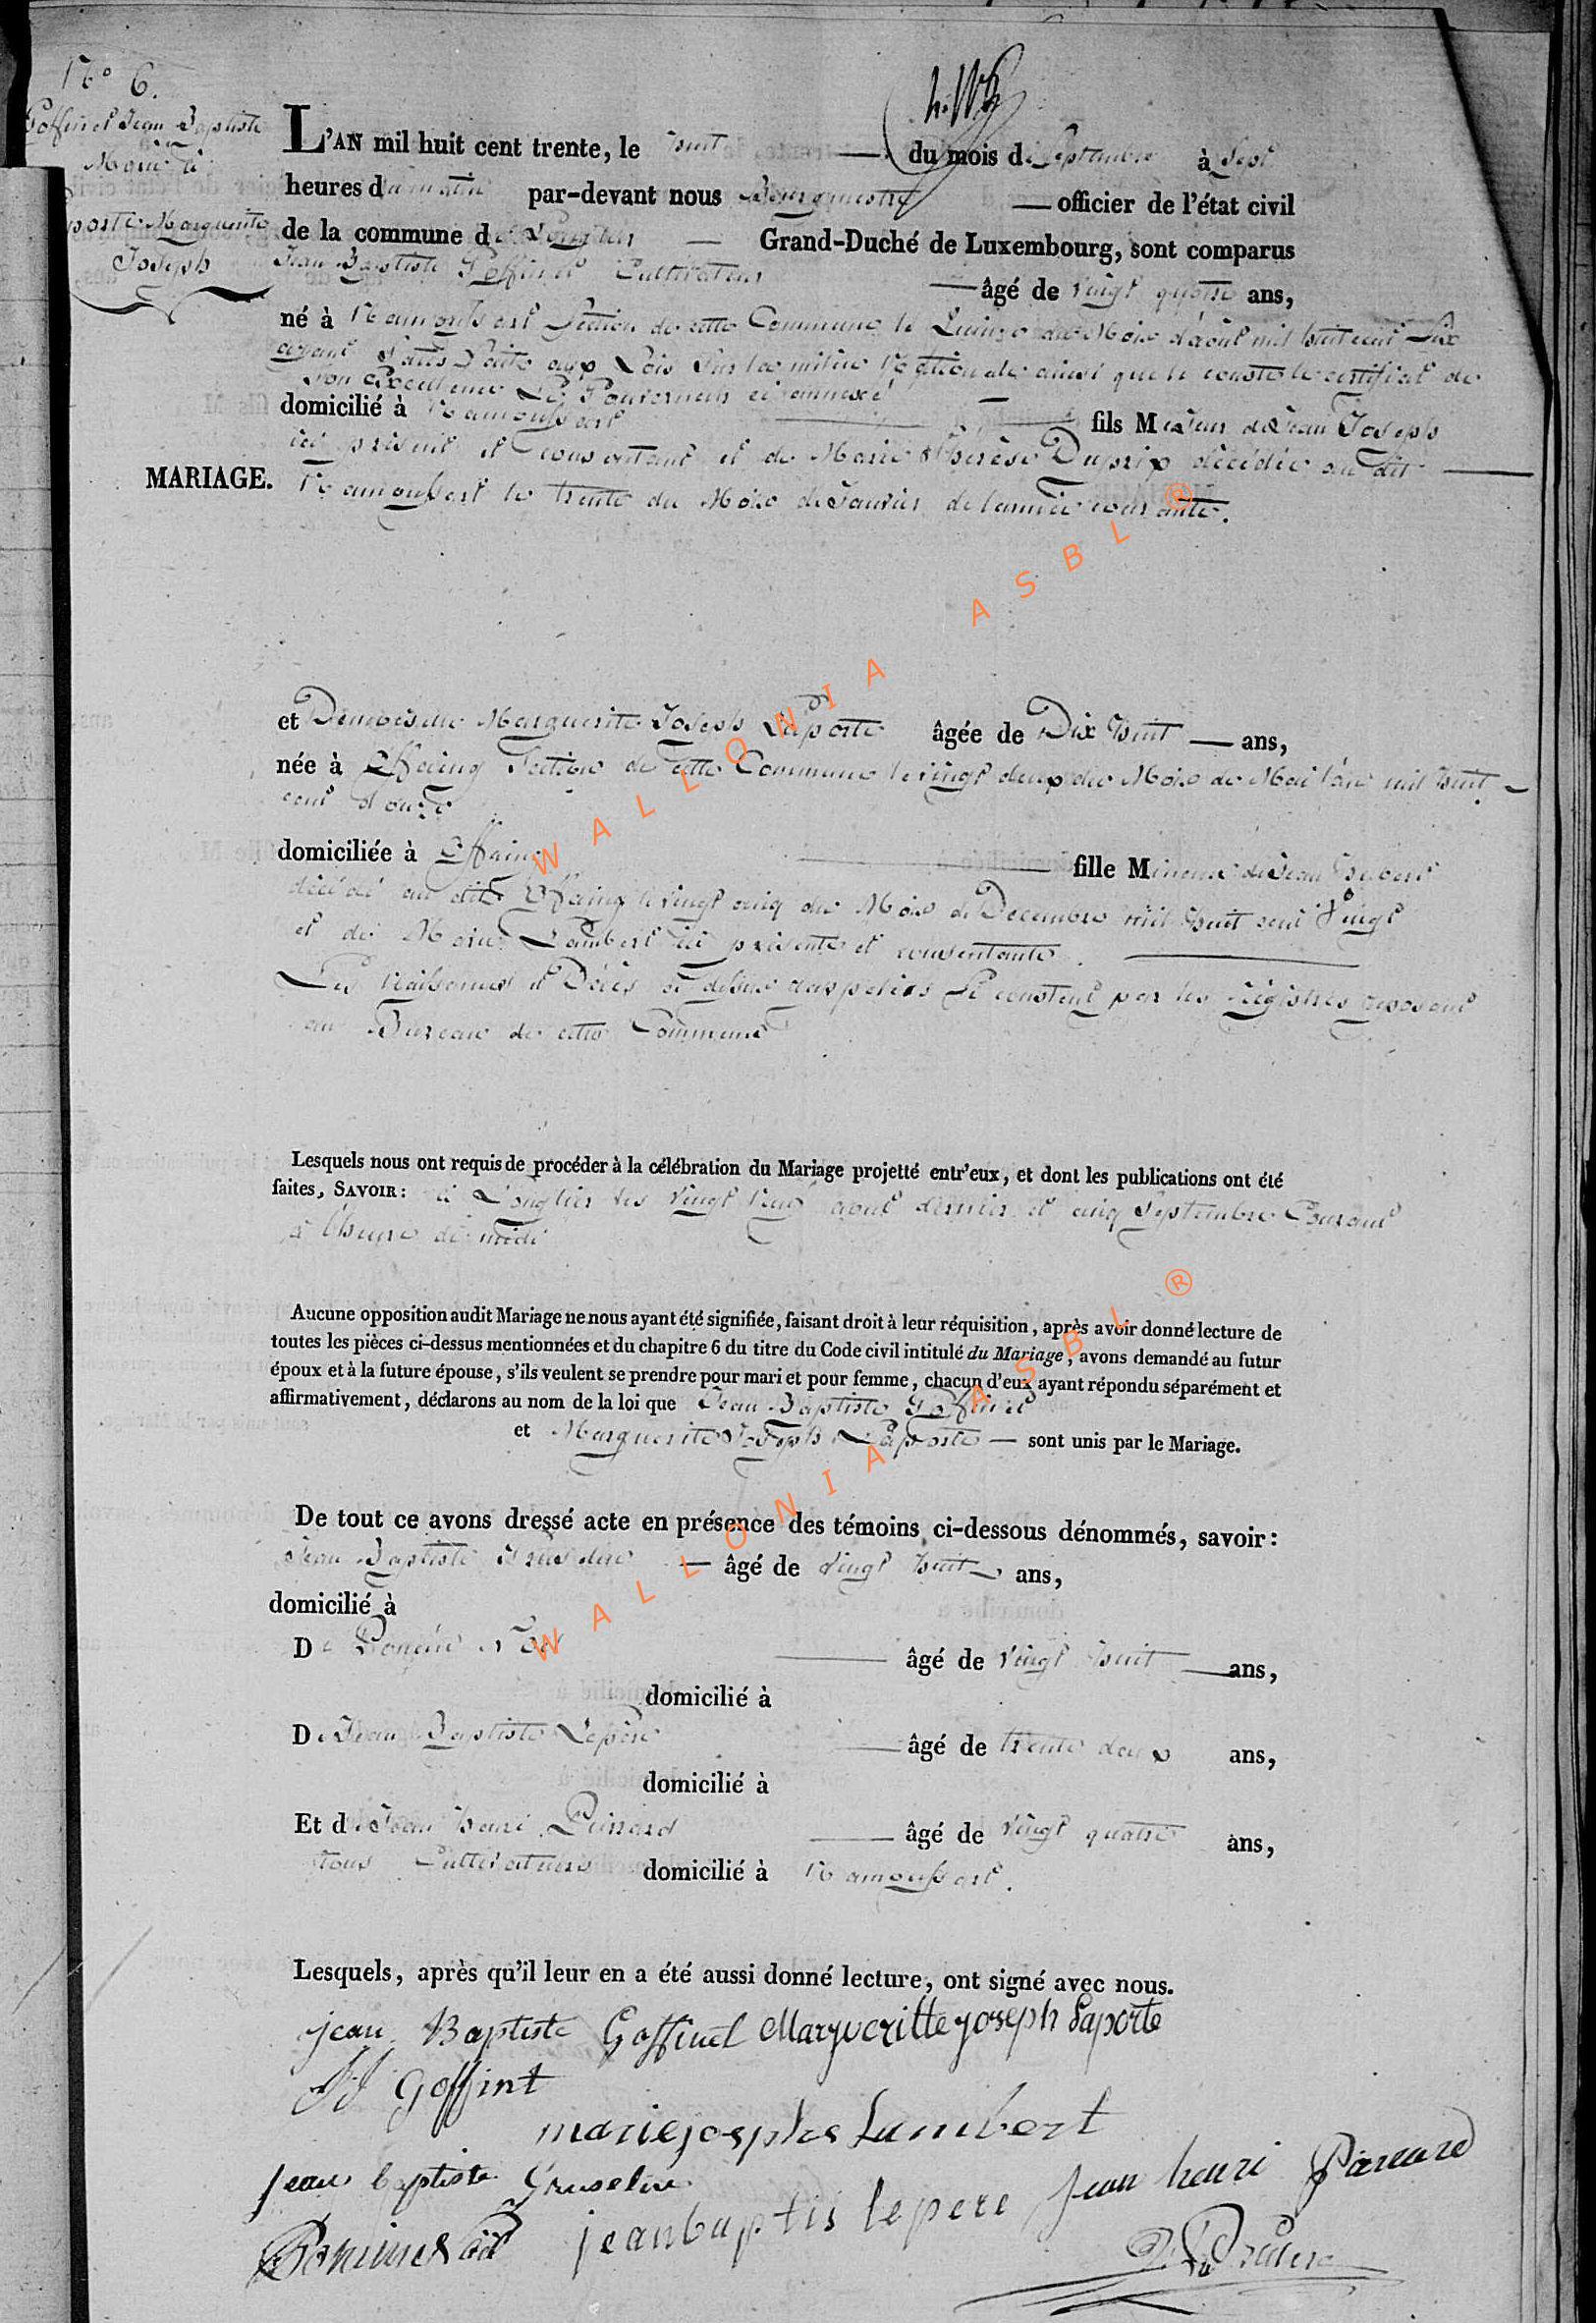 N° 6.
Goffinet Jean Baptiste
à
Marie
Laporte Marguerite
Joseph
L'AN mil huit cent trente, le huit du mois de Septembre à Sept
heures du matin par-devant nous Bourguemestre officier de l'état civil
de la commune de Longlier Grand-Duché de Luxembourg, sont comparus
Jean Baptiste Goffinet Cultivateur âgé de vingt quatre ans,
né à Namoussart Section de cette Commune le Quinze du Mois d'août mil huit cent Six
ayant Satisfaite aux Lois Sur la milice Nationale ainsi que le conste le certificat de
Son Excellence Le Gouverneur ci annexé
domicilié à Namoussart fils Majeur de Jean Joseph
ici présent et consentant et de Marie Thérèse Duprix décédée au dit
MARIAGE.
Namoussart le trente du Mois de Janvier de l'année courante.
et Demoiselle Marguerite Joseph Laporte âgée de Dix huit ans,
née à Offaing Section de cette Commune le vingt deux du Mois de Mai l'an mil huit
cent douze
domiciliée à Offaing fille Mineure de Jean Hubert
décédé au dit Offaing le vingt cinq du Mois de Decembre mil huit cent Vingt
et de Marie Lambert ici présente et consentante.
Les Naissances et Décès ci dessus rappelés Se constent par les Régistres reposant
au Bureau de cette Commune
Lesquels nous ont requis de procéder à la célébration du Mariage projetté entr'eux, et dont les publications ont été
faites, SAVOIR: à Longlier les Vingt Neuf aout dernier et cinq Septembre Courant
à l'heure de midi
Aucune opposition audit Mariage ne nous ayant été signifiée, faisant droit à leur réquisition, après avoir donné lecture de
toutes les pièces ci-dessus mentionnées et du chapitre 6 du titre du Code civil intitulé du Mariage, avons demandé au futur
époux et à la future épouse, s'ils veulent se prendre pour mari et pour femme, chacun d'eux ayant répondu séparément et
affirmativement, déclarons au nom de la loi que Jean Baptiste Goffinet
et Marguerite Joseph Laporte sont unis par le Mariage.
De tout ce avons dressé acte en présence des témoins ci-dessous dénommés, savoir:
Jean Baptiste Gruselin âgé de Vingt huit ans,
domicilié à
De Noël âgé de Vingt huit ans,
domicilié à
De Jean Baptiste Lepère âgé de trente deux ans,
domicilié à
Et de Jean henri Pierrard âgé de Vingt quatre ans,
tous Cultivateurs domicilié à Namoussart.
Lesquels, après qu'il leur en a été aussi donné lecture, ont signé avec nous.
jean Baptiste Goffinet Margueritte joseph Laporte
JJ Goffint
marie josephe Lambert
jean baptiste Gruselin
jean henri Pierrard
jean baptis lepere
WALLONIA ASBL ®
WALLONIA ASBL ®